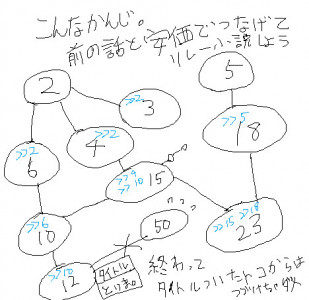 こんなかんじ。
前の話と安価でつなげて
リレー小説しよう
2
5
>>2
3
>>2
4
>>5
18
>>2
6
>>4
>>10 15
>>6
10
50
>>15 >>18
23
>>10
12
タイトル
といき。
終わって
タイトルついたトコからは
つづけちゃダメ